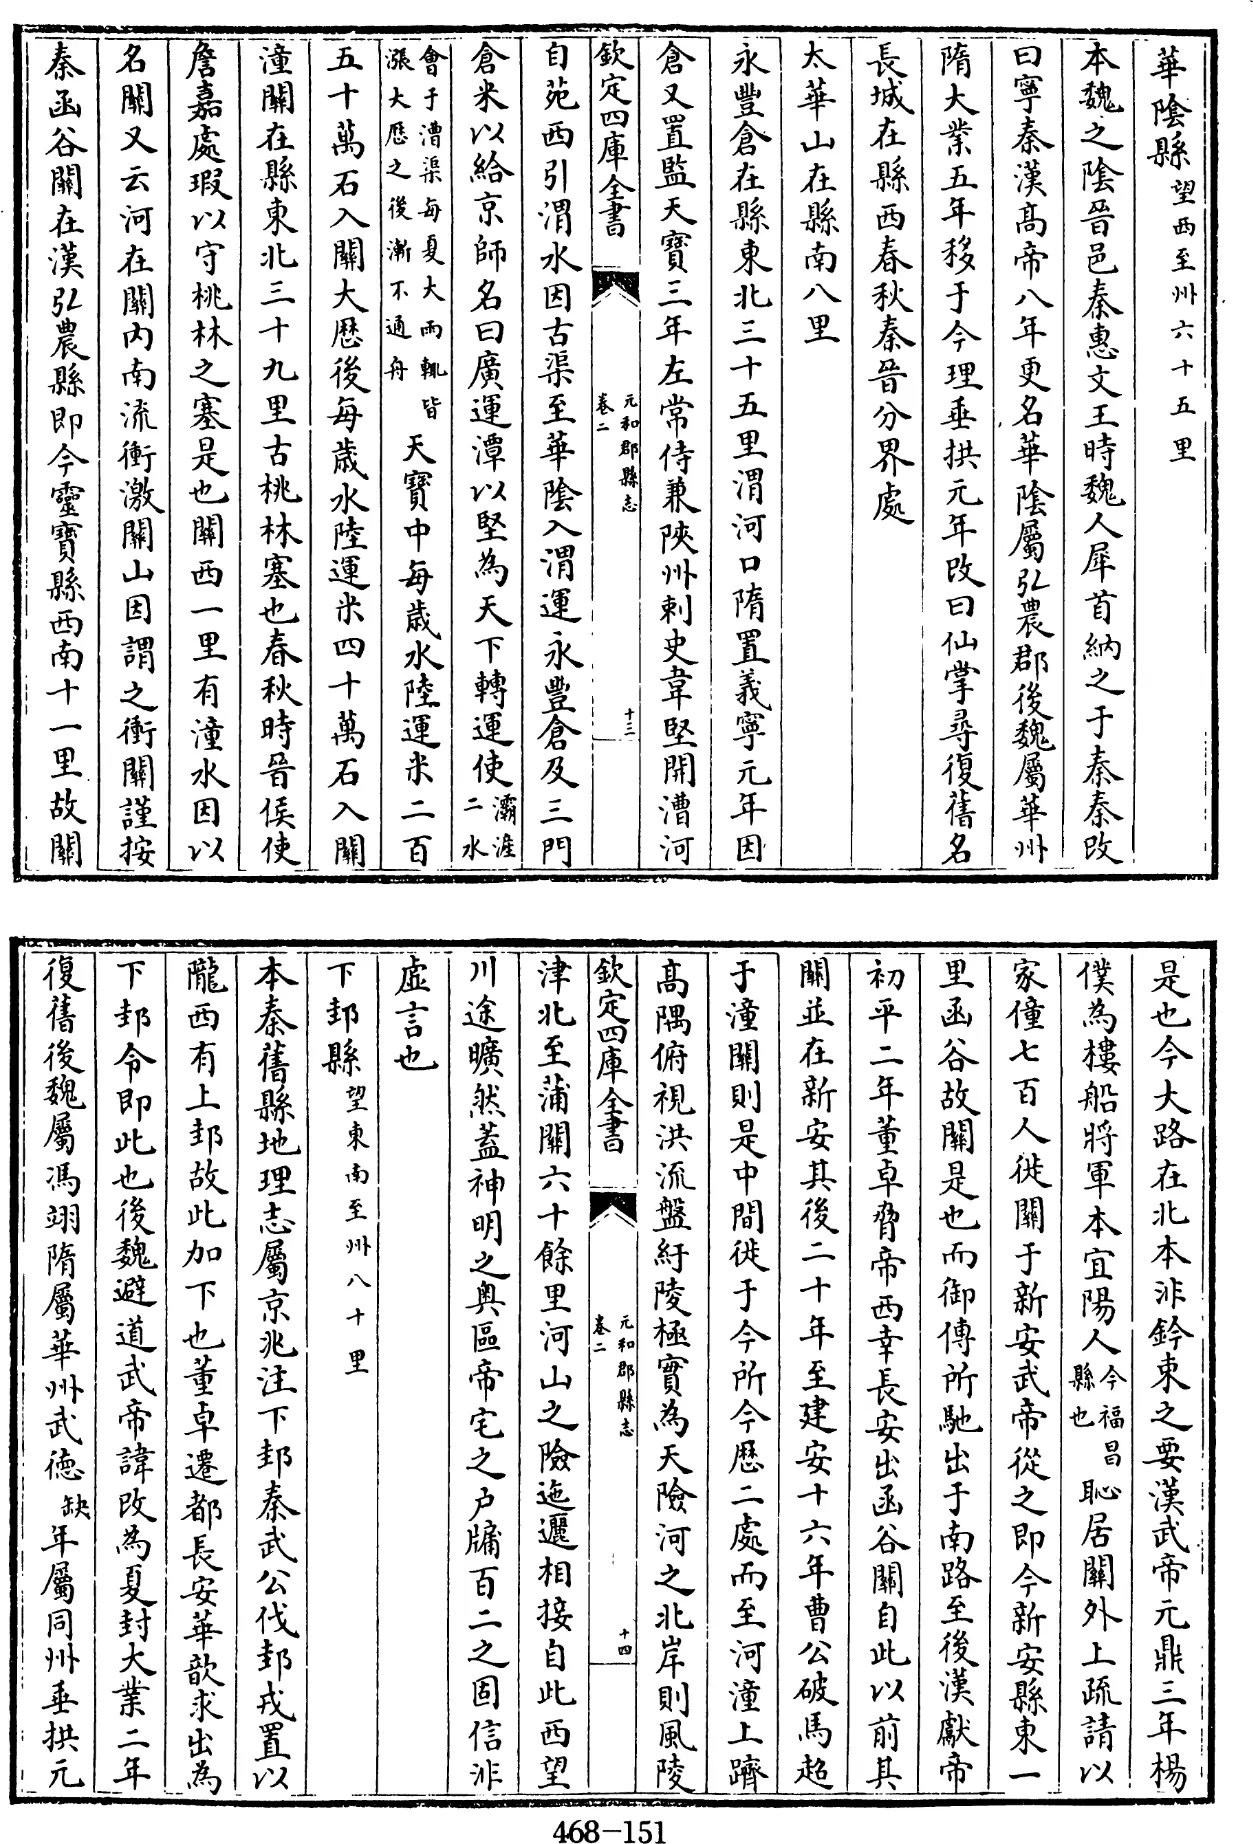 華隂縣望西至州六十五里
本魏之隂晉邑秦惠文王時魏人犀首納之于秦秦改
曰寧秦漢髙帝八年更名華隂屬弘農郡後魏屬華州
隋大業五年移于今理垂拱元年改曰仙掌尋復舊名
長城在縣西春秋秦晉分界處
太華山在縣南八里
永豐倉在縣東北三十五里渭河口隋置義寧元年因
倉又置監天寶三年左常侍兼陜州刺史韋堅開漕河
欽定四庫全書
元和郡縣志
卷二
十三
自苑西引渭水因古渠至華隂入渭運永豐倉及三門
倉米以給京師名曰廣運潭以堅為天下轉運使灞滻二水
會于漕渠每夏大雨輒皆漲大厯之後漸不通舟天寶中每歲水陸運米二百
五十萬石入關大厯後每歲水陸運米四十萬石入關
潼關在縣東北三十九里古桃林塞也春秋時晉侯使
詹嘉處瑕以守桃林之塞是也關西一里有潼水因以
名關又云河在關内南流衝激關山因謂之衝關謹按
秦函谷關在漢弘農縣即今靈寶縣西南十一里故關
是也今大路在北本非鈐束之要漢武帝元鼎三年楊
僕為樓船將軍本宜陽人今福昌縣也恥居關外上疏請以
家僮七百人徙關于新安武帝從之即今新安縣東一
里函谷故關是也而御傳所馳出于南路至後漢獻帝
初平二年董卓脅帝西幸長安出函谷關自此以前其
關並在新安其後二十年至建安十六年曹公破馬超
于潼關則是中間徙于今所今厯二處而至河潼上躋
髙隅俯視洪流盤紆陵極實為天險河之北岸則風陵
欽定四庫全書
元和郡縣志
卷二
十四
津北至蒲關六十餘里河山之險迤邐相接自此西望
川途曠然蓋神明之奥區帝宅之户牖百二之固信非
虛言也
下邽縣望東南至州八十里
本秦舊縣地理志屬京兆注下邽秦武公伐邽戎置以
隴西有上邽故此加下也董卓遷都長安華歆求出為
下邽令即此也後魏避道武帝諱改為夏封大業二年
復舊後魏屬馮翊隋屬華州武德缺年屬同州垂拱元
468-151